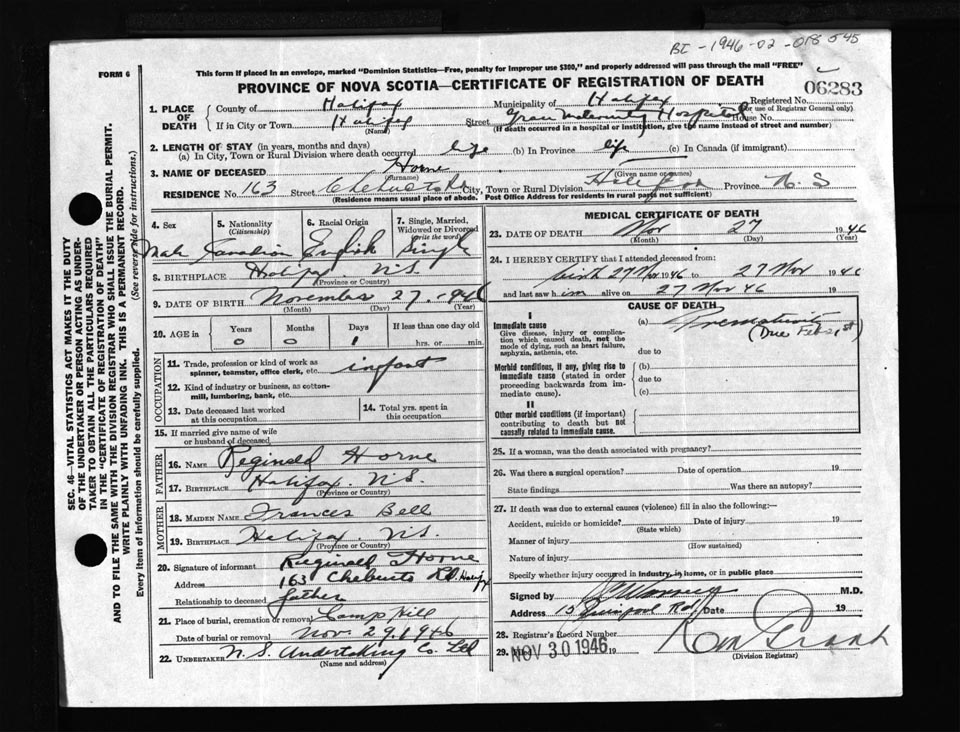 BE - 1946-02-018545
FORM 6
This form if placed in an envelope, marked "Dominion Statistics—Free, penalty for improper use $300," and properly addressed will pass through the mail "FREE"
06283
PROVINCE OF NOVA SCOTIA—CERTIFICATE OF REGISTRATION OF DEATH
1. PLACE OF DEATH
County of Halifax Municipality of Halifax Registered No.
(For use of Registrar General only)
If in City or Town Halifax Street Grace Maternity Hospital House No.
(Name) (If death occurred in a hospital or institution, give the name instead of street and number)
2. LENGTH OF STAY (in years, months and days)
(a) In City, Town or Rural Division where death occurred life (b) In Province life (c) In Canada (if immigrant)
3. NAME OF DECEASED Horne
(Surname) (Given name or names)
RESIDENCE No. 163 Street Chebucto Rd City, Town or Rural Division Halifax Province N. S
(Residence means usual place of abode. Post Office Address for residents in rural parts not sufficient)
4. Sex 5. Nationality (Citizenship) 6. Racial Origin 7. Single, Married, Widowed or Divorced (write the word)
Male Canadian English Single
8. BIRTHPLACE Halifax N.S.
(Province or Country)
9. DATE OF BIRTH November 27 - 946
(Month) (Day) (Year)
10. AGE in Years Months Days If less than one day old
0 0 1 hrs. or min.
OCCUPATION
11. Trade, profession or kind of work as spinner, teamster, office clerk, etc. infant
12. Kind of industry or business, as cotton-mill, lumbering, bank, etc.
13. Date deceased last worked at this occupation
14. Total yrs. spent in this occupation
15. If married give name of wife or husband of deceased
FATHER
16. NAME Reginald Horne
17. BIRTHPLACE Halifax N.S.
(Province or Country)
MOTHER
18. MAIDEN NAME Frances Bell
19. BIRTHPLACE Halifax N.S.
(Province or Country)
20. Signature of informant Reginald Horne
Address 163 Chebucto Rd. Halifx
Relationship to deceased father
21. Place of burial, cremation or removal Camp Hill
Date of burial or removal Nov. 29. 1946
22. UNDERTAKER N. S. Undertaking Co. Ltd
(Name and address)
MEDICAL CERTIFICATE OF DEATH
23. DATE OF DEATH Nov 27 1946
(Month) (Day) (Year)
24. I HEREBY CERTIFY that I attended deceased from:
birth 27 Nov 1946 to 27 Nov 1946
and last saw him alive on 27 Nov 46 19
CAUSE OF DEATH
I
Immediate cause
Give disease, injury or complication which caused death, not the mode of dying, such as heart failure, asphyxia, asthenia, etc.
(a) Prematurity
(Due Feb 21st)
due to
Morbid conditions, if any, giving rise to immediate cause (stated in order proceeding backwards from immediate cause).
(b)
due to
(c)
II
Other morbid conditions (if important) contributing to death but not causally related to immediate cause.
25. If a woman, was the death associated with pregnancy?
26. Was there a surgical operation? Date of operation 19
State findings Was there an autopsy?
27. If death was due to external causes (violence) fill in also the following:—
Accident, suicide or homicide? Date of injury 19
(State which)
Manner of injury
(How sustained)
Nature of injury
Specify whether injury occurred in industry, in home, or in public place
Signed by M.D.
Address Quinpool Rd Date 19
28. Registrar's Record Number
29. NOV 30 1946 19
(Division Registrar)
SEC. 46—VITAL STATISTICS ACT MAKES IT THE DUTY
OF THE UNDERTAKER OR PERSON ACTING AS UNDER-
TAKER TO OBTAIN ALL THE PARTICULARS REQUIRED
IN THE "CERTIFICATE OF REGISTRATION OF DEATH"
AND TO FILE THE SAME WITH THE DIVISION REGISTRAR WHO SHALL ISSUE THE BURIAL PERMIT.
WRITE PLAINLY WITH UNFADING INK. THIS IS A PERMANENT RECORD.
Every item of information should be carefully supplied. (See reverse side for instructions.)